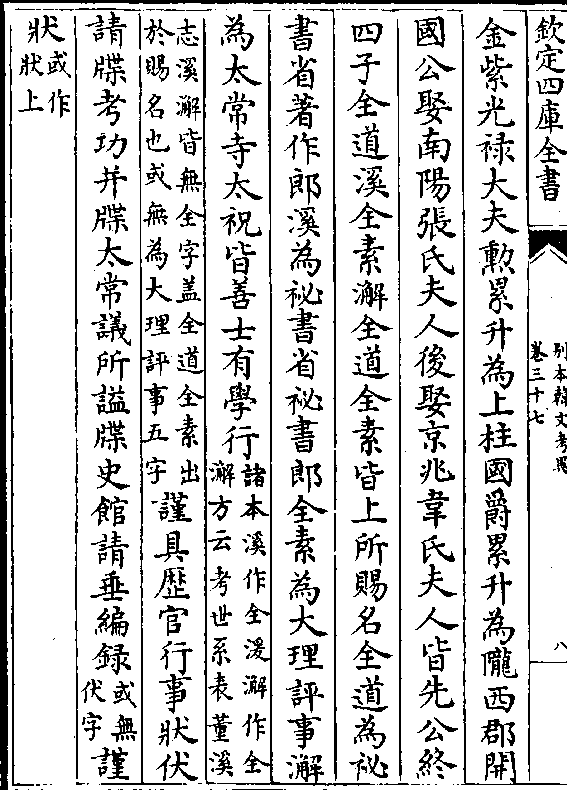 欽定四庫全書
別本韓文考異
卷三十七
八
金紫光祿大夫勲累升為上柱國爵累升為隴西郡開
國公娶南陽張氏夫人後娶京兆韋氏夫人皆先公終
四子全道溪全素澥全道全素皆上所賜名全道為祕
書省著作郎溪為祕書省祕書郎全素為大理評事澥
為太常寺太祝皆善士有學行
諸本溪作全湲澥作全
澥方云考世系表董溪
志溪澥皆無全字蓋全道全素出
於賜名也或無為大理評事五字
謹具歴官行事狀伏
請牒考功并牒太常議所諡牒史館請垂編録
或無
伏字
謹
狀
或作
狀上